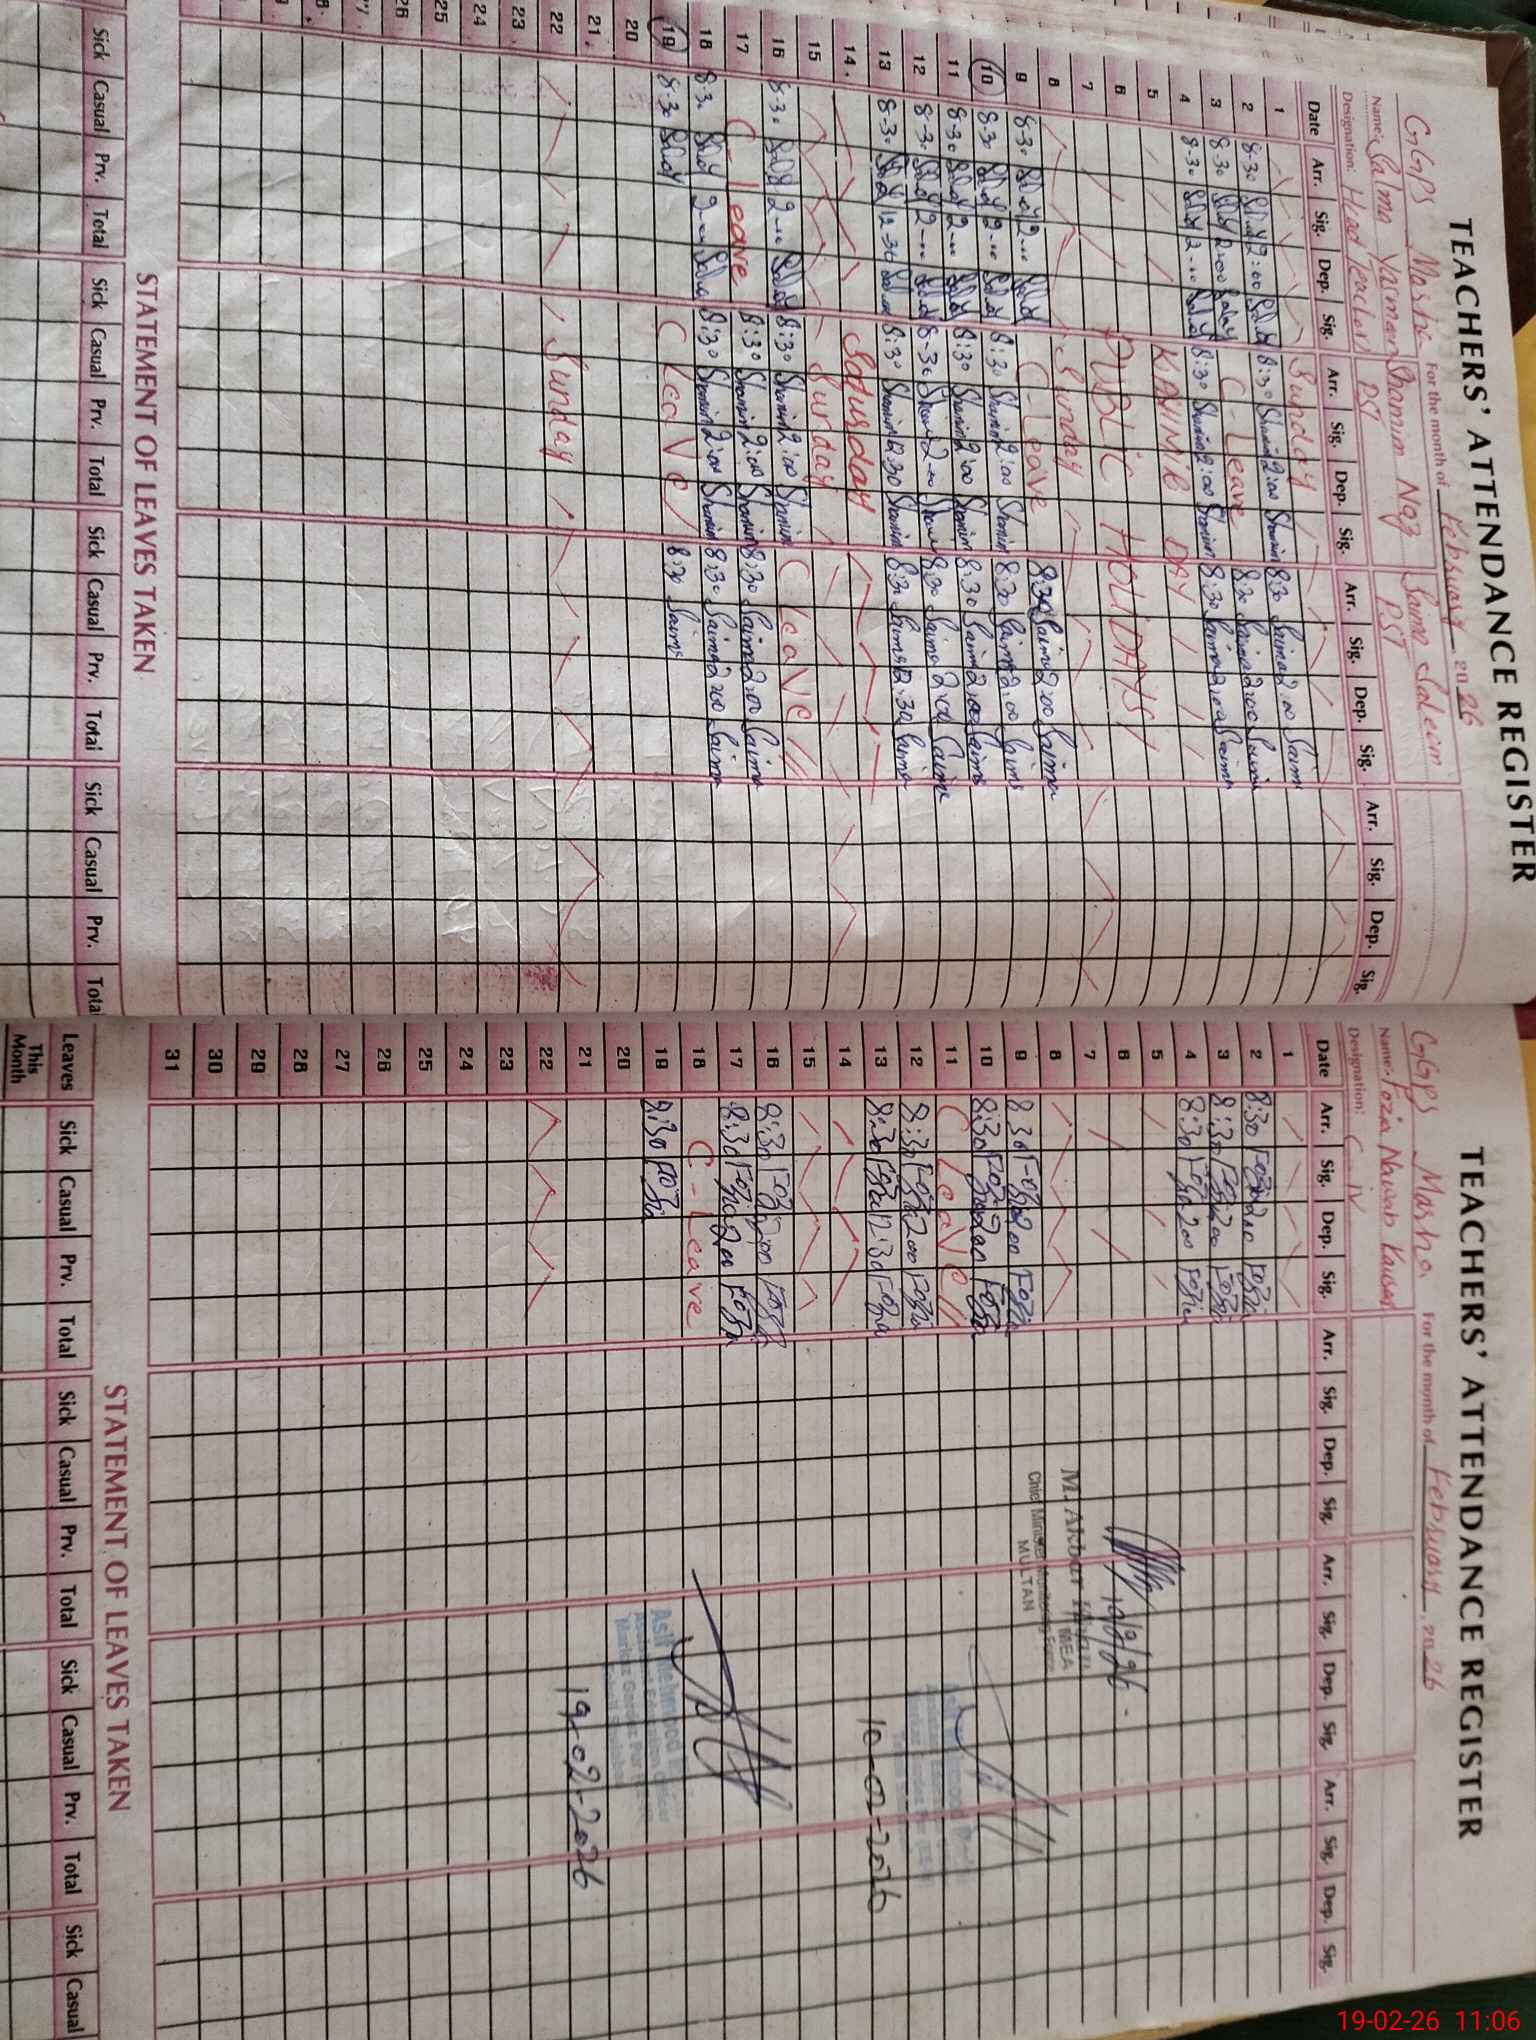 TEACHERS' ATTENDANCE REGISTER
GGPS Masha For the month of February 2026
Name:- Salma Yasmeen Shamim Naz Saima Saleem
Designation: Head Teacher PST PST
Date Arr. Sig. Dep. Sig. Arr. Sig. Dep. Sig. Arr. Sig. Dep. Sig. Arr. Sig. Dep. Sig.
1 Sunday
2 8-30 2-00 8:30 Shamim 2:00 Shamim 8:30 Saima 2:00 Saima
3 8-30 2-00 C-Leave 8:30 Saima 2:00 Saima
4 8-30 2-00 8:30 Shamim 2:00 Shamim 8:30 Saima 2:00 Saima
5 KASHMIR DAY
6 PUBLIC HOLIDAYS
7
8 Sunday
9 8-30 2-00 C-Leave 8:30 Saima 2:00 Saima
10 8-30 2-00 8:30 Shamim 2:00 Shamim 8:30 Saima 2:00 Saima
11 8-30 2-00 8:30 Shamim 2:00 Shamim 8:30 Saima 2:00 Saima
12 8-30 2-00 8-30 Shamim 2-00 Shamim 8:30 Saima 2:00 Saima
13 8-30 12-30 8:30 Shamim 12:30 Shamim 8:30 Saima 12:30 Saima
14. Saturday
15 Sunday
16 8-30 2-00 8:30 Shamim 2:00 Shamim C Leave
17 C Leave 8:30 Shamim 2:00 Shamim 8:30 Saima 2:00 Saima
18 8-30 2-00 8:30 Shamim 2:00 Shamim 8:30 Saima 2:00 Saima
19 8-30 C Leave 8:30 Saima
20
21.
22 Sunday
23.
24.
25
26
STATEMENT OF LEAVES TAKEN
Sick Casual Prv. Total Sick Casual Prv. Total Sick Casual Prv. Total Sick Casual Prv. Total
TEACHERS' ATTENDANCE REGISTER
GGPS Masha For the month of February, 2026
Name:- Fozia Nawab Kausar
Designation: C-IV
Date Arr. Sig. Dep. Sig. Arr. Sig. Dep. Sig. Arr. Sig. Dep. Sig. Arr. Sig. Dep. Sig.
1
2 8:30 Fozia 2:00 Fozia
3 8:30 Fozia 2:00 Fozia
4 8:30 Fozia 2:00 Fozia
5
6
7
8
9 8:30 Fozia 2:00 Fozia
10 8:30 Fozia 2:00 Fozia
11 C Leave
12 8:30 Fozia 2:00 Fozia
13 8:30 Fozia 12:30 Fozia
14
15
16 8:30 Fozia 2:00 Fozia
17 8:30 Fozia 2:00 Fozia
18 C-Leave
19 8:30 Fozia
20
21
22
23
24
25
26
27
28
29
30
31
M. Akbar
MEA
Chief Minister Monitoring Force
MULTAN
10-02-2026
Asif Mehmood
19-02-2026
STATEMENT OF LEAVES TAKEN
Leaves Sick Casual Prv. Total Sick Casual Prv. Total Sick Casual Prv. Total Sick Casual
This Month
19-02-26 11:06